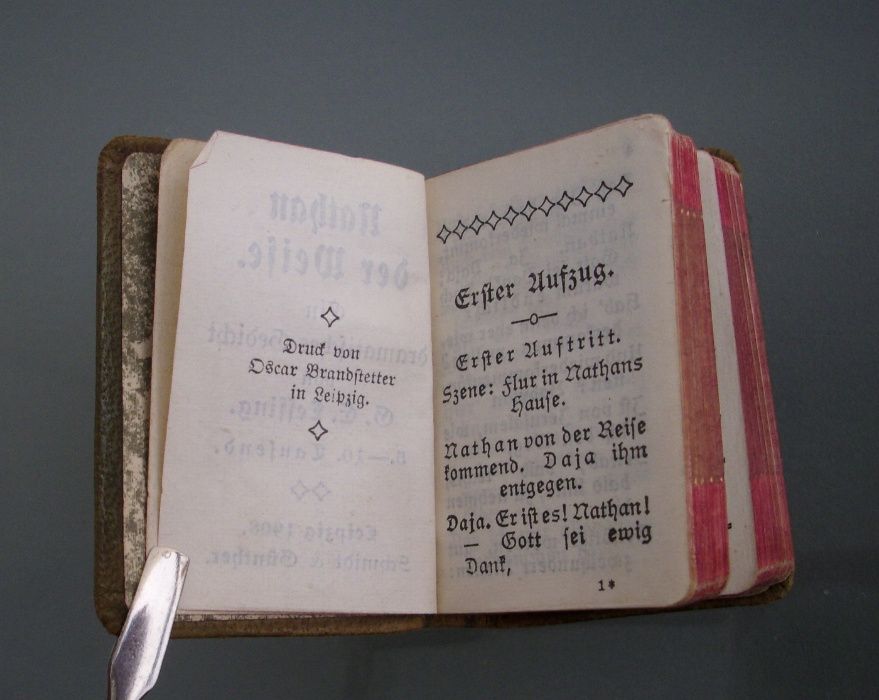 Druck von
Oscar Brandstetter
in Leipzig.
Erster Aufzug.
Erster Auftritt.
Szene: Flur in Nathans
Hause.
Nathan von der Reise
kommend. Daja ihm
entgegen.
Daja. Er ist es! Nathan!
— Gott sei ewig
Dank,
1*